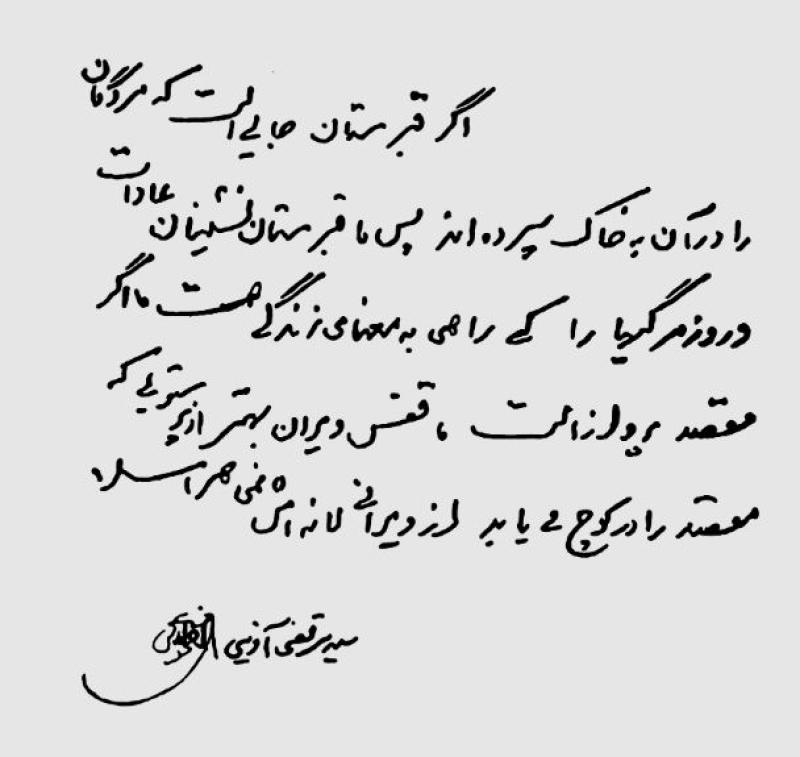 اگر قبرستان جایی است که مردگان
را در آن به خاک سپرده اند پس ما قبرستان نشینان عادات
و روزمرگیها را کی راهی به معنای زندگی هست ما اگر
مقصد پرواز است ما قفس ویران بهتر از پرستویی که
مقصد را در کوچ می یابد از ویرانی لانه اش نمی هراسد
سید مرتضی آوینی